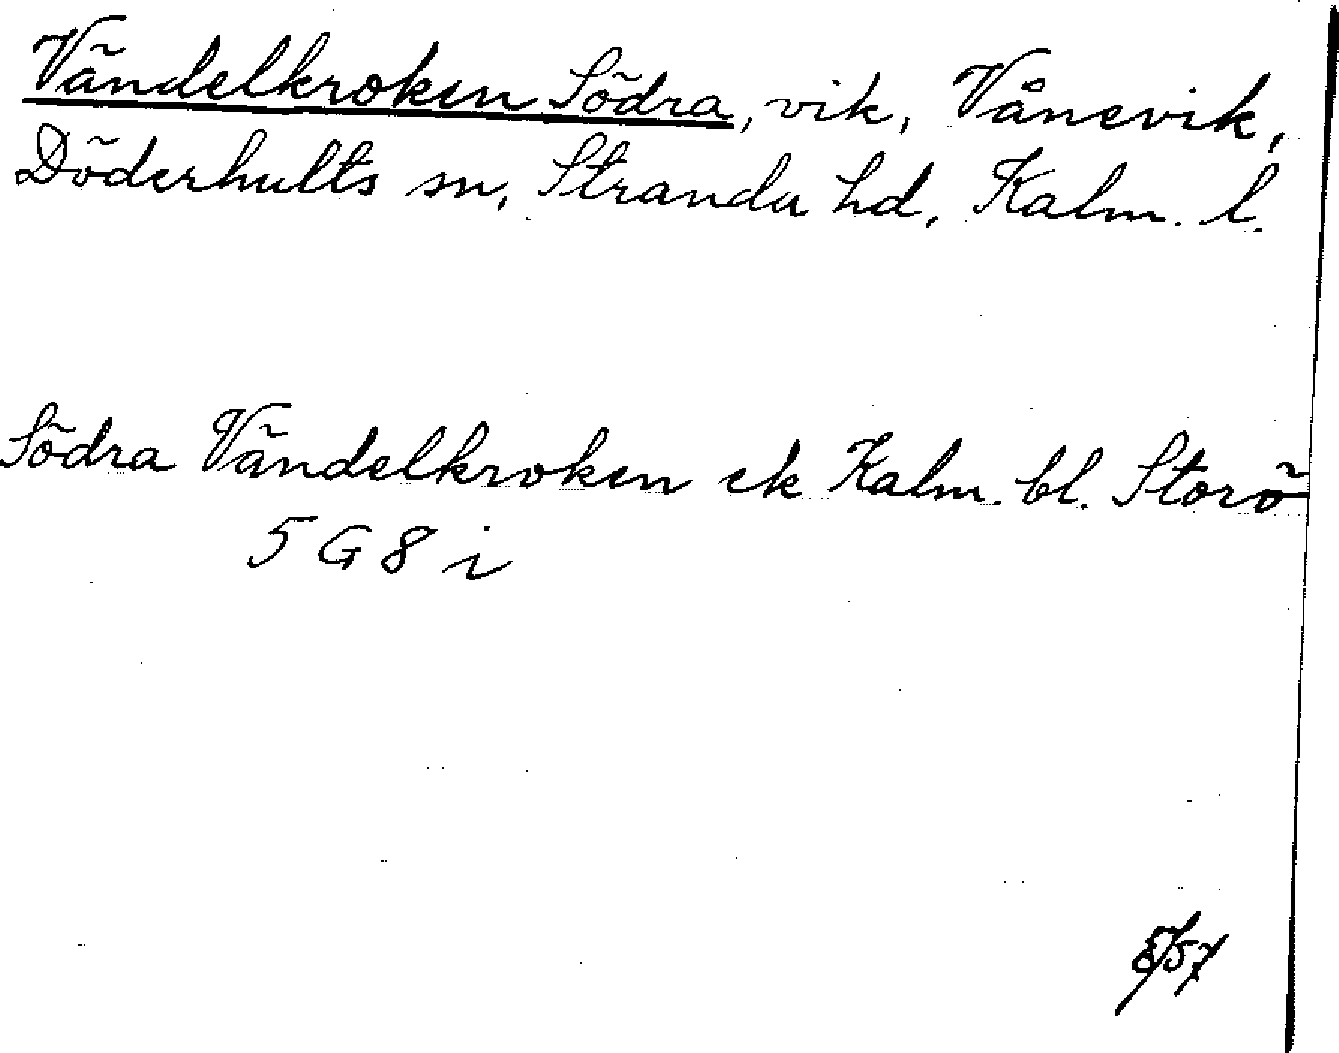 Vändelkroken Södra, vik, Vånevik,
Döderhults sn, Stranda hd, Kalm. l.
Södra Vändelkroken ek Kalm. bl. Storö
5 G 8 i